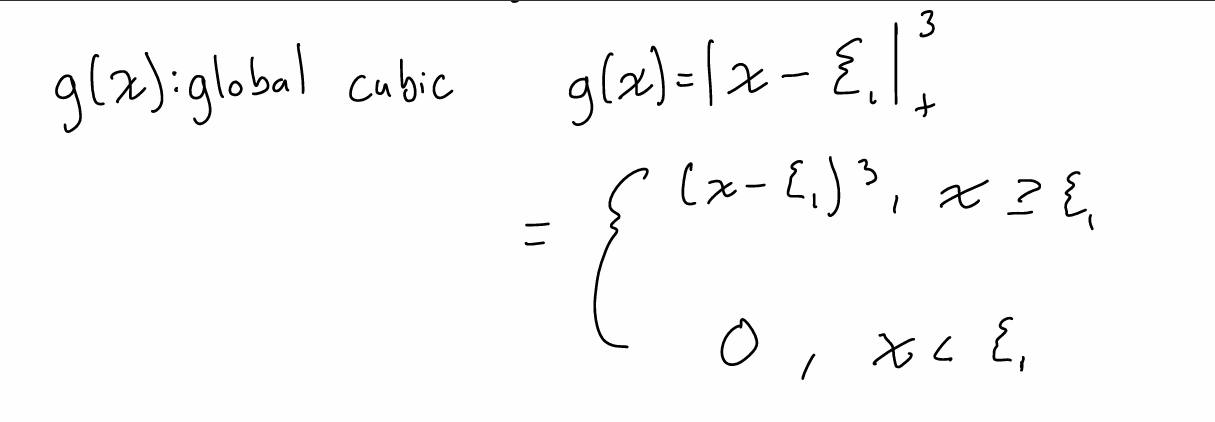 g(x): global cubic g(x) = |x - ξ₁|₊³
= { (x - ξ₁)³, x ≥ ξ₁
0, x < ξ₁